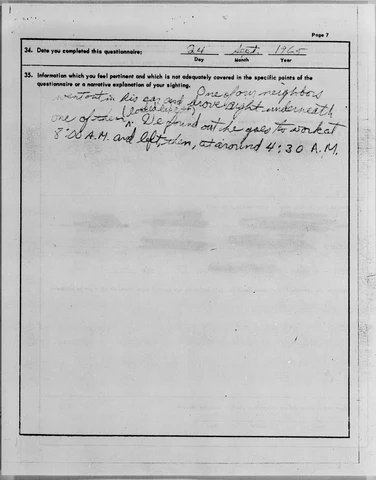 Page 7
34. Date you completed this questionnaire: 24 Sept. 1965
Day Month Year
35. Information which you feel pertinent and which is not adequately covered in the specific points of the
questionnaire or a narrative explanation of your sighting.
One of our neighbors
went out in his car and drove right underneath
one of them. We found out he goes to work at
8:00 A.M. and left, then, at around 4:30 A.M.